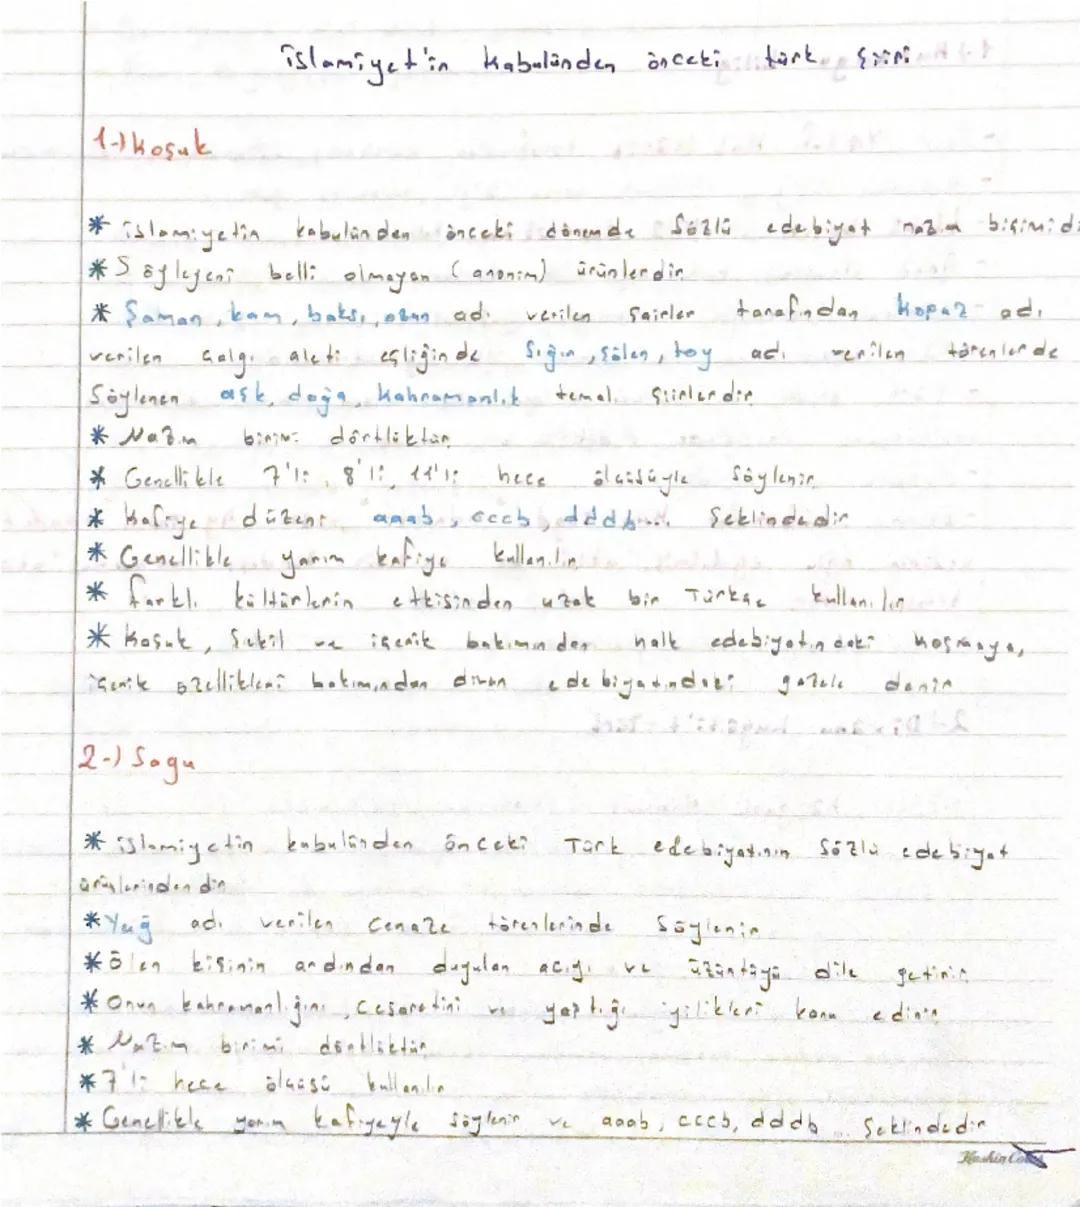 İslamiyet'in Kabulünden önceki türk şiiri
1-) Koşuk
* İslamiyetin kabulünden önceki dönemde Sözlü edebiyat nazım biçimidi
* Söyleyeni belli olmayan (anonim) ürünlerdir.
* Şaman, kam, baksı, ozan adı verilen şairler tarafından Kopuz adı
verilen çalgı aleti eşliğinde Sığır, Şölen, toy adı verilen törenlerde
Söylenen aşk, doğa, Kahramanlık temalı şiirlerdir
* Nazım birimi dörtlüktür.
* Genellikle 7'li, 8'li, 11'li hece ölçüsüyle söylenir.
* Kafiye düzeni aaab, cccb, dddb... Şeklindedir
* Genellikle yarım kafiye kullanılır.
* Farklı kültürlerin etkisinden uzak bir Türkçe kullanılır
* Koşuk, Şekil ve içerik bakımından halk edebiyatındaki Koşmaya,
içerik özellikleri bakımından divan edebiyatındaki gazele denir
2-) Sagu
* İslamiyetin kabulünden önceki Türk edebiyatının Sözlü edebiyat
ürünlerindendir
* Yuğ adı verilen cenaze törenlerinde söylenir
* Ölen kişinin ardından duyulan acıyı ve üzüntüyü dile getirir.
* Onun kahramanlığını, cesaretini ve yaptığı iyilikleri konu edinir
* Nazım birimi dörtlüktür
* 7'li hece ölçüsü kullanılır
* Genellikle yarım kafiyeyle söylenir ve aaab, cccb, dddb... Şeklindedir